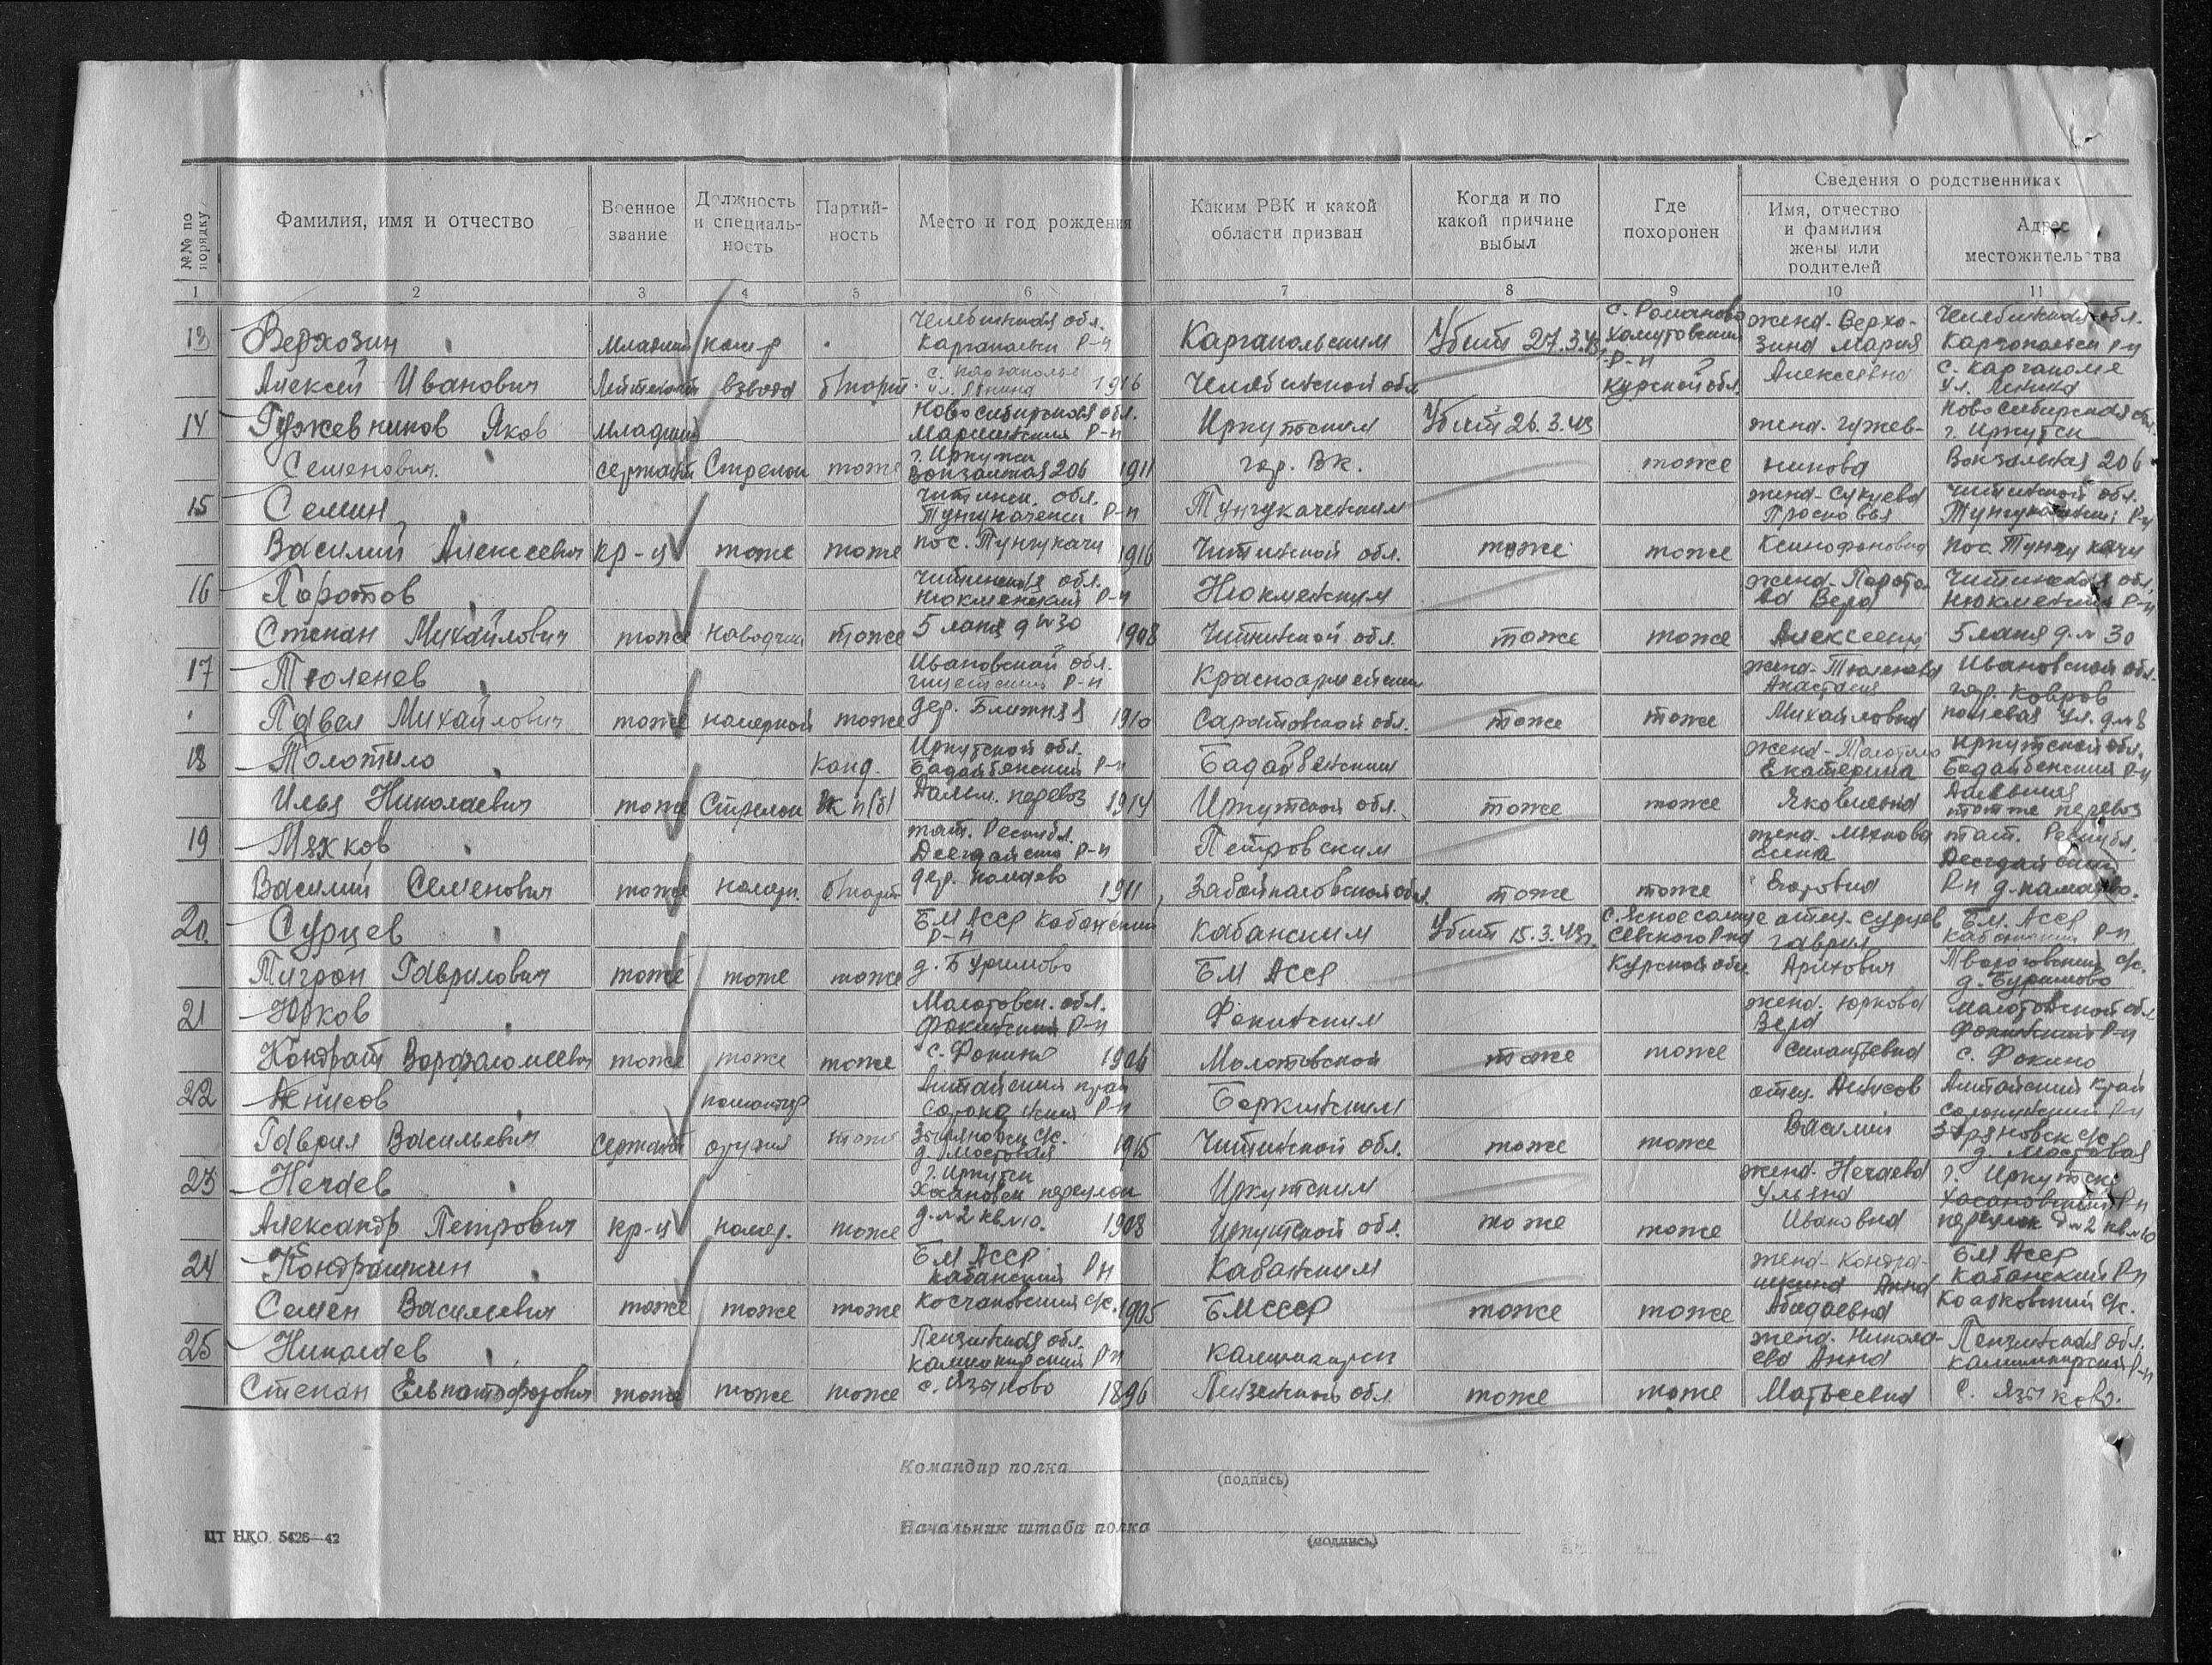 №№ по порядку
Фамилия, имя и отчество
Военное звание
Должность и специальность
Партийность
Место и год рождения
Каким РВК и какой области призван
Когда и по какой причине выбыл
Где похоронен
Сведения о родственниках
Имя, отчество и фамилия жены или родителей
Адрес местожительства
1 2 3 4 5 6 7 8 9 10 11
13 Верхозин Младший ком-р Челябинская обл. Каргапольск Р-н Каргапольским Убит 27.3.43 с. Романово Хомутовский Р-н жена-Верхозина Мария Челябинская обл. Каргапольск Р-н
Алексей Иванович Лейтенант взвода б/парт. с. Каргаполье ул. Ленина 1916 Челябинской обл Курской обл. Алексеевна с. Каргаполье ул. Ленина
14 Гужевников Яков Младший Новосибирская обл. Мариинский Р-н Иркутским Убит 26.3.43 жена. Гужев- Новосибирская обл. г. Иркутск
Семенович. сержант Стрелок тоже г. Иркутск Вокзальная 206 1911 гор. ВК. тоже никова Вокзальная 206
15 Семин Читинск. обл. Тунгукаченск Р-н Тунгукаченским жена-Сукнева Просковья Читинской обл. Р-н
Василий Алексеевич кр-ц тоже тоже пос. Тунгукачи 1916 Читинской обл. тоже тоже Ксинофоновна пос. Тунгукачи
16 Поротов Читинская обл. Нюкменский Р-н Нюкменским жена-Поротова Вера Читинская обл. Нюкменский Р-н
Степан Михайлович тоже наводчик тоже 5 лапа д № 30 1908 Читинской обл. тоже тоже Алексеевна 5 лапа д. № 30
17 Тюленев Ивановской обл. Р-н Красноармейским жена-Тюленева Анастасия Ивановской обл. гор. Ковров
Павел Михайлович тоже номерной тоже дер. Ближняя 1910 Саратовской обл. тоже тоже Михайловна ул. д № 8
18 Толотило Канд. Иркутской обл. Бадайбенский Р-н жена-Толотило Екатерина Иркутской обл. Бадайбенский Р-н
Илья Николаевич тоже Стрелок ВКП(б) перевоз 1914 Иркутской обл. тоже тоже Яковлевна перевоз
19 Мяхков тат. Республ. Р-н Петровским жена. Мяхкова Елена тат. Республ.
Василий Семенович тоже номерн. б/парт дер. Камаево 1911 тоже тоже Егоровна Р-н д. Камаево.
20 Сурцев БМ АССР Кабанский Р-н Кабанским Убит 15.3.43г. Севского Р-на отец. Сурцев Гаврил БМ. АССР Кабанский Р-н
Гаврилович тоже тоже тоже д. Буримово БМ АССР Курской обл. Арихович д. Буримово
21 Юрков Молотовск. обл. Фокинский Р-н Фокинским жена. Юркова Вера Молотовской обл Фокинский Р-н
Кондрат Варфаломеевич тоже тоже тоже с. Фокино 1906 Молотовской тоже тоже Силантьевна с. Фокино
22 Денисов командир Алтайский край Р-н отец. Денисов Алтайский край Р-н
Гаврил Васильевич Сержант орудия тоже Зыряновск с/с. д. Мостовая 1915 Читинской обл. тоже тоже Василий Зыряновск с/с д. Мостовая
23 Нечаев г. Иркутск Хасановск переулок Иркутским жена. Нечаева Ульяна г. Иркутск Хасановский
Александр Петрович кр-ц номер. тоже д. № 2 кв № 10. 1908 Иркутской обл. тоже тоже Ивановна переулок д № 2 кв № 10
24 Кондрашкин БМ АССР Кабанский Рн Кабанским жена-Кондрашкина Анна БМ АССР Кабанский Р-н
Семен Васильевич тоже тоже тоже с/с. 1905 БМССР тоже тоже с/с.
25 Николаев Пензинская обл. Р-н жена. Николаева Анна Пензинская обл. Р-н
Степан тоже тоже тоже с. Языково 1896 Пензенской обл. тоже тоже Матвеевна с. Языково.
Командир полка
(подпись)
Начальник штаба полка
(подпись)
ЦТ НКО. 5426—42